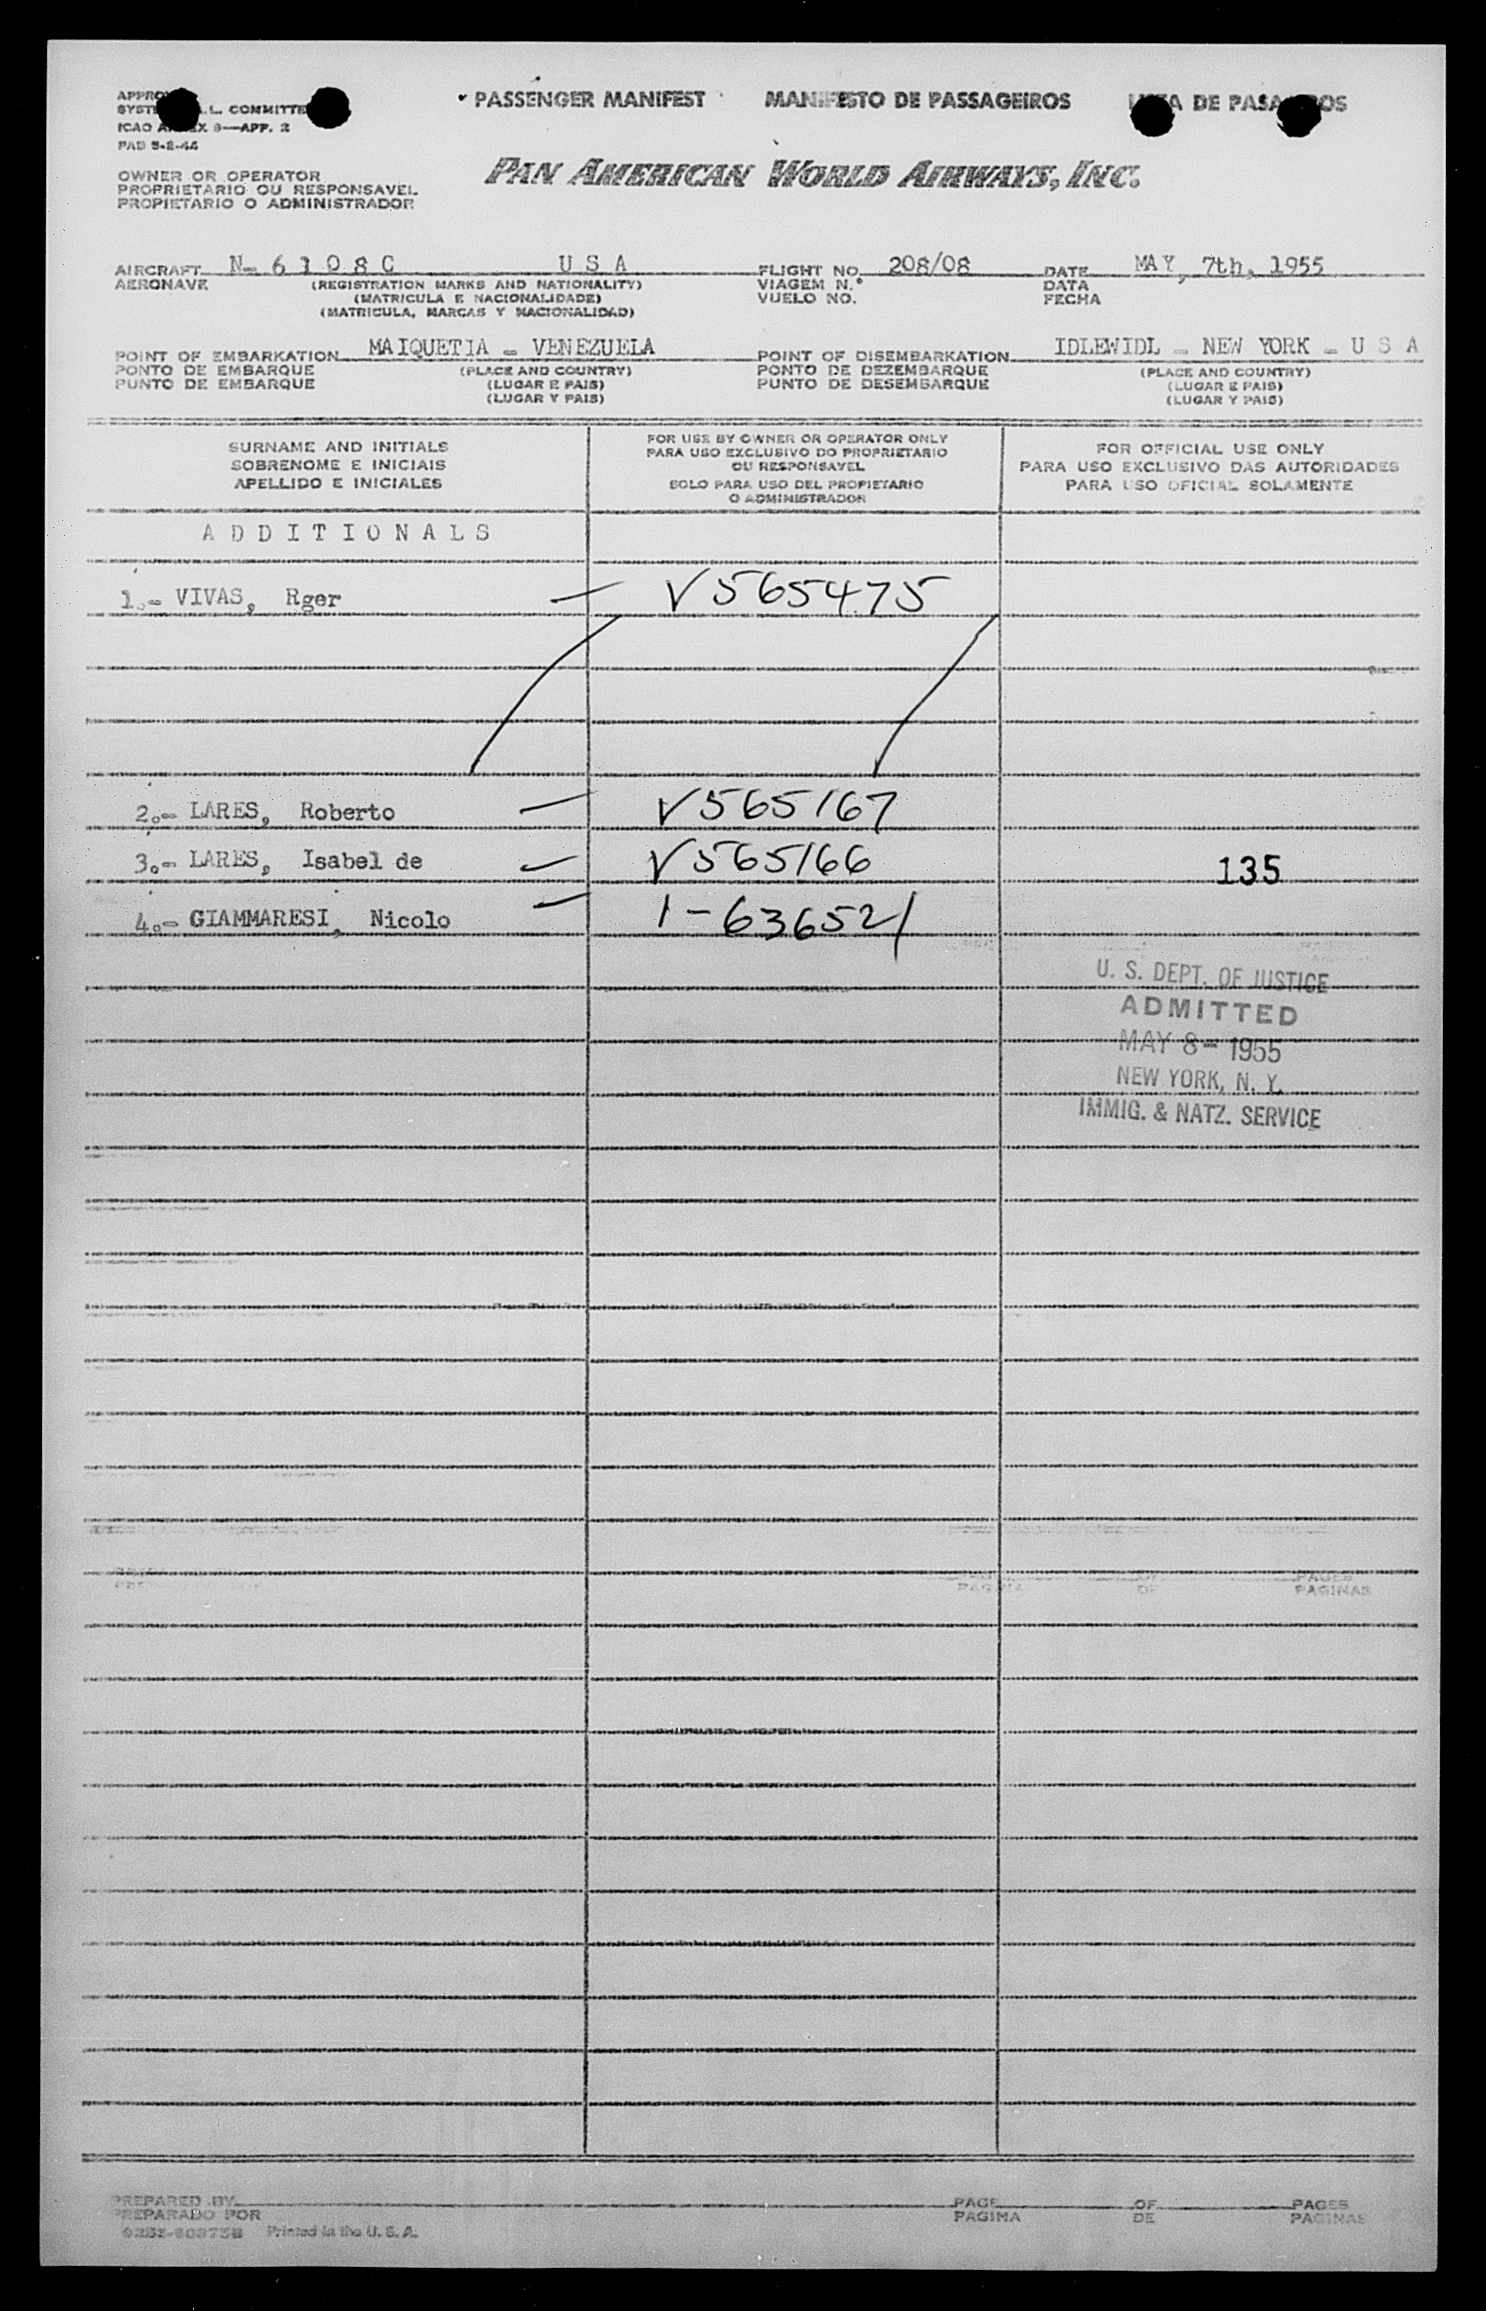 PASSENGER MANIFEST MANIFESTO DE PASSAGEIROS DE
COMMITTEE
ICAO 9—APP. 2
OWNER OR OPERATOR
PROPRIETARIO OU RESPONSAVEL
PROPIETARIO O ADMINISTRADOR
PAN AMERICAN WORLD AIRWAYS, INC.
AIRCRAFT N- 6108C USA FLIGHT NO. 208/08 DATE MAY, 7th, 1955
AERONAVE (REGISTRATION MARKS AND NATIONALITY) VIAGEM N.° DATA
(MATRICULA E NACIONALIDADE) VUELO NO. FECHA
(MATRICULA, MARCAS Y NACIONALIDAD)
POINT OF EMBARKATION MAIQUETIA - VENEZUELA POINT OF DISEMBARKATION IDLEWIDL - NEW YORK - U S A
PONTO DE EMBARQUE (PLACE AND COUNTRY) PONTO DE DEZEMBARQUE (PLACE AND COUNTRY)
PUNTO DE EMBARQUE (LUGAR E PAIS) PUNTO DE DESEMBARQUE (LUGAR E PAIS)
(LUGAR Y PAIS) (LUGAR Y PAIS)
SURNAME AND INITIALS
SOBRENOME E INICIAIS
APELLIDO E INICIALES
FOR USE BY OWNER OR OPERATOR ONLY
PARA USO EXCLUSIVO DO PROPRIETARIO
OU RESPONSAVEL
SOLO PARA USO DEL PROPIETARIO
O ADMINISTRADOR
FOR OFFICIAL USE ONLY
PARA USO EXCLUSIVO DAS AUTORIDADES
PARA USO OFICIAL SOLAMENTE
ADDITIONALS
1.- VIVAS, Rger — V565475
2.- LARES, Roberto — V565167
3.- LARES, Isabel de — V565166 135
4.- GIAMMARESI, Nicolo — 1-636521
U. S. DEPT. OF JUSTICE
ADMITTED
MAY 8 - 1955
NEW YORK, N. Y.
IMMIG. & NATZ. SERVICE
OF PAGES
DE PAGINAS
PREPARED BY PAGE OF PAGES
PREPARADO POR PAGINA DE PAGINAS
Printed in the U. S. A.